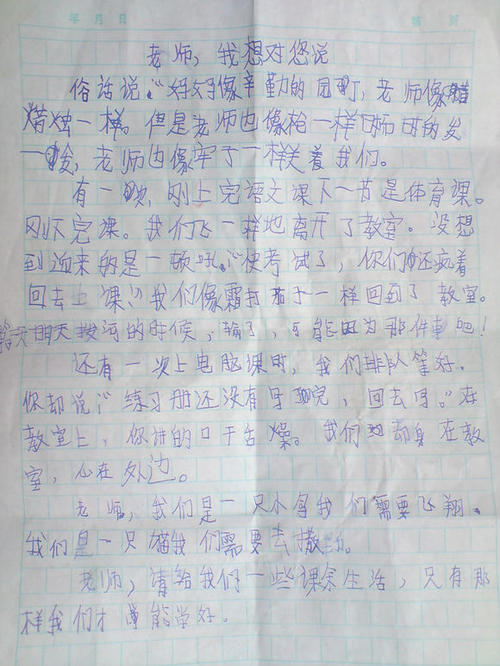 年 月 日
老师，我想对您说
俗话说：“好好像辛勤的园丁，老师像
蜡烛一样。但是老师也像枪一样啪啪的发
一发，老师也像牢子一样关着我们。
有一次，刚上完语文课下一节是体育课。
刚下完课。我们飞一样地离开了教室。没想
到迎来的是一顿吼：“快考试了，你们还疯着
回去上课”我们像霜打茄子一样回到了教室。
天拔河的时候，输了，可能因为那件事吧！
还有一次上电脑课时，我们排队等好。
你却说：“练习册还没有写完，回去写。”在
教室上，你讲的口干舌燥。我们却身在教
室，心在外边。
老师，我们是一只小鸟我们需要飞翔。
我们是一只猫我们需要去撒。
老师，请给我们一些课余生活，只有那
样我们才能学好。